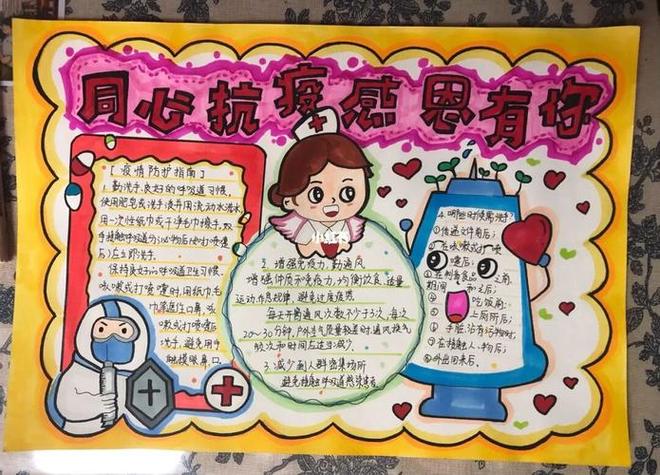 同心抗疫感恩有你
[疫情防护指南]
1.勤洗手、良好的呼吸道习惯,
使用肥皂或洗手液并用流动水洗水
用一次性纸巾或干净毛巾擦手,双
手接触呼吸道分泌物后(如打喷嚏
后)立即洗手。
保持良好的呼吸道卫生习惯,
咳嗽或打喷嚏时,用纸巾毛
巾等遮住口鼻,咳
嗽或打喷嚏后
洗手,避免用手
触摸眼鼻口。
小红书
2.增强免疫力、勤通风
增强体质和免疫力,均衡饮食、适量
运动、作息规律,避免过度疲劳
每天开窗通风次数不少于3次,每次
20~30分钟,户外空气质量较差时通风换气
频次和时间应适当减少。
3.减少到人群密集场所
避免接触呼吸道感染患者
4.哪些时候需洗手?
①传递文件前后;
②在咳嗽或打喷
嚏后;
③在制备食品之前、
期间和之后;
④吃饭前;
⑤上厕所后;
⑥手脏
⑦在接触他人物后;
⑧外出回来后。